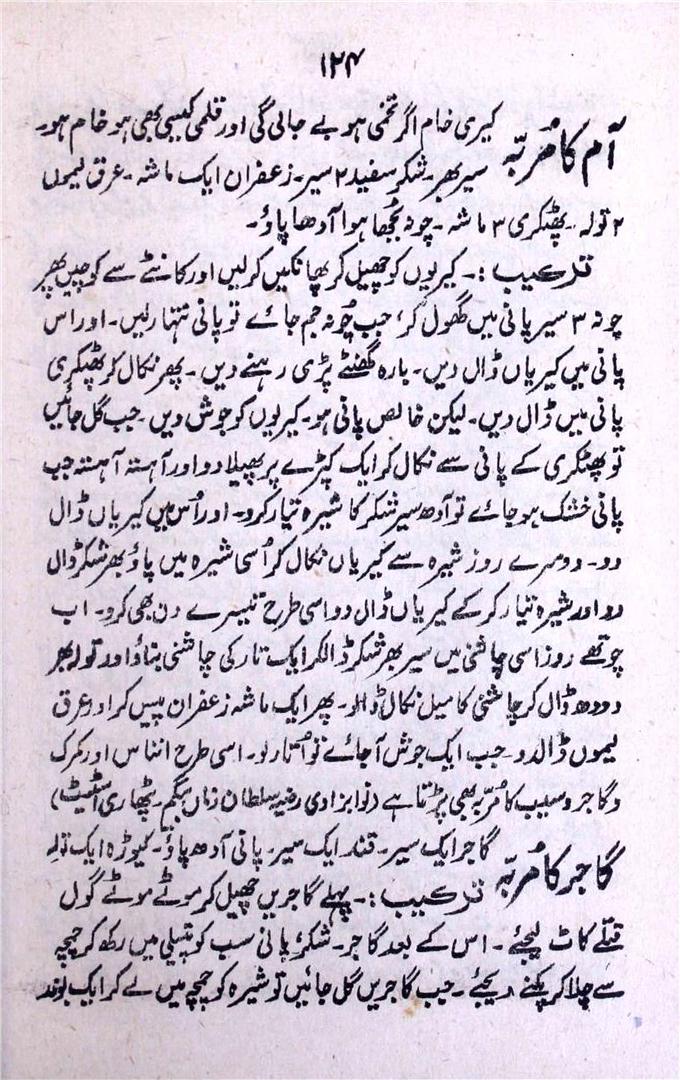 ۱۲۴
آم کا مُربّہ کیری خام اگر تخمی ہو بے جالی کی اور قلمی کیسی بھی ہو خام ہو۔
سیر بھر۔ شکر سفید ۲ سیر۔ زعفران ایک ماشہ۔ عرق لیموں
۲ تولہ۔ پھٹکری ۳ ماشہ۔ چونہ بُجھا ہوا آدھا پاؤ۔
ترکیب :۔ کیریوں کو چھیل کر پھانکیں کرلیں اور کانٹے سے کوچیں پھر
چونہ ۳ سیر پانی میں گھول کر، جب چُونہ جم جائے تو پانی نتھار لیں۔ اور اس
پانی میں کیریاں ڈال دیں۔ بارہ گھنٹے پڑی رہنے دیں۔ پھر نکال کر پھٹکری
پانی میں ڈال دیں۔ لیکن خالص پانی ہو۔ کیریوں کو جوش دیں۔ جب گل جائیں
تو پھٹکری کے پانی سے نکال کر ایک کپڑے پر پھیلا دو اور آہستہ آہستہ جب
پانی خشک ہو جائے تو آدھ سیر شکر کا شیرہ تیار کرو۔ اور اُس میں کیریاں ڈال
دو۔ دوسرے روز شیرہ سے کیریاں نکال کر اُسی شیرہ میں پاؤ بھر شکر ڈال
دو اور شیرہ تیار کرکے کیریاں ڈال دو اسی طرح تیسرے دن بھی کرو۔ اب
چوتھے روز اسی چاشنی میں سیر بھر شکر ڈالکر ایک تار کی چاشنی بناؤ اور تولہ بھر
دودھ ڈال کر چاشنی کا میل نکال ڈالو۔ پھر ایک ماشہ زعفران پیس کر اور عرق
لیموں ڈالدو۔ جب ایک جوش آجائے تو اُتار لو۔ اسی طرح انناس اور کمرک
و گاجر و سیب کا مُربّہ بھی پڑتا ہے (نوابزادی رضیہ سلطان زماں بیگم۔ پٹھاری اسٹیٹ)
گاجر کا مُربّہ گاجر ایک سیر۔ قند ایک سیر۔ پانی آدھ پاؤ۔ کیوڑہ ایک تولہ
ترکیب :۔ پہلے گاجریں چھیل کر موٹے موٹے گول
قتلے کاٹ لیجئے۔ اس کے بعد گاجر۔ شکر، پانی سب کو پتیلی میں رکھ کر چمچہ
سے چلا کر پکنے دیجئے۔ جب گاجریں گل جائیں تو شیرہ کو چمچے میں لے کر ایک بوند